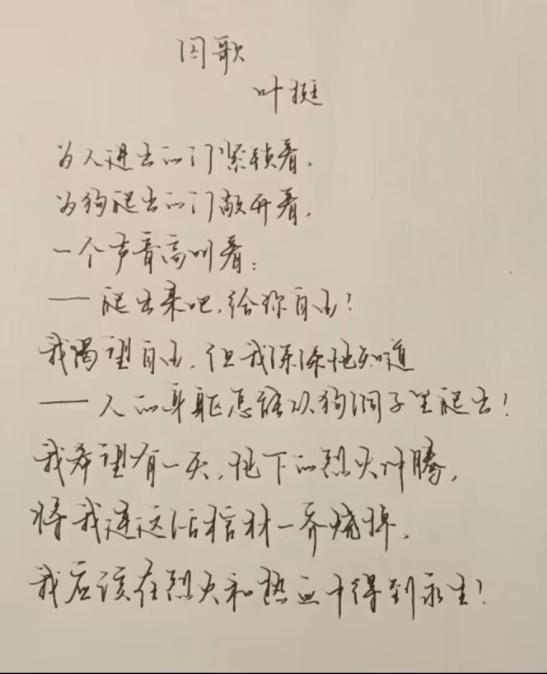 囚歌
叶挺
为人进出的门紧锁着，
为狗爬出的门敞开着，
一个声音高叫着：
——爬出来吧，给你自由！
我渴望自由，但我深深地知道
——人的身躯怎能从狗洞子里爬出！
我希望有一天，地下的烈火冲腾，
将我连这活棺材一齐烧掉，
我应该在烈火和热血中得到永生！